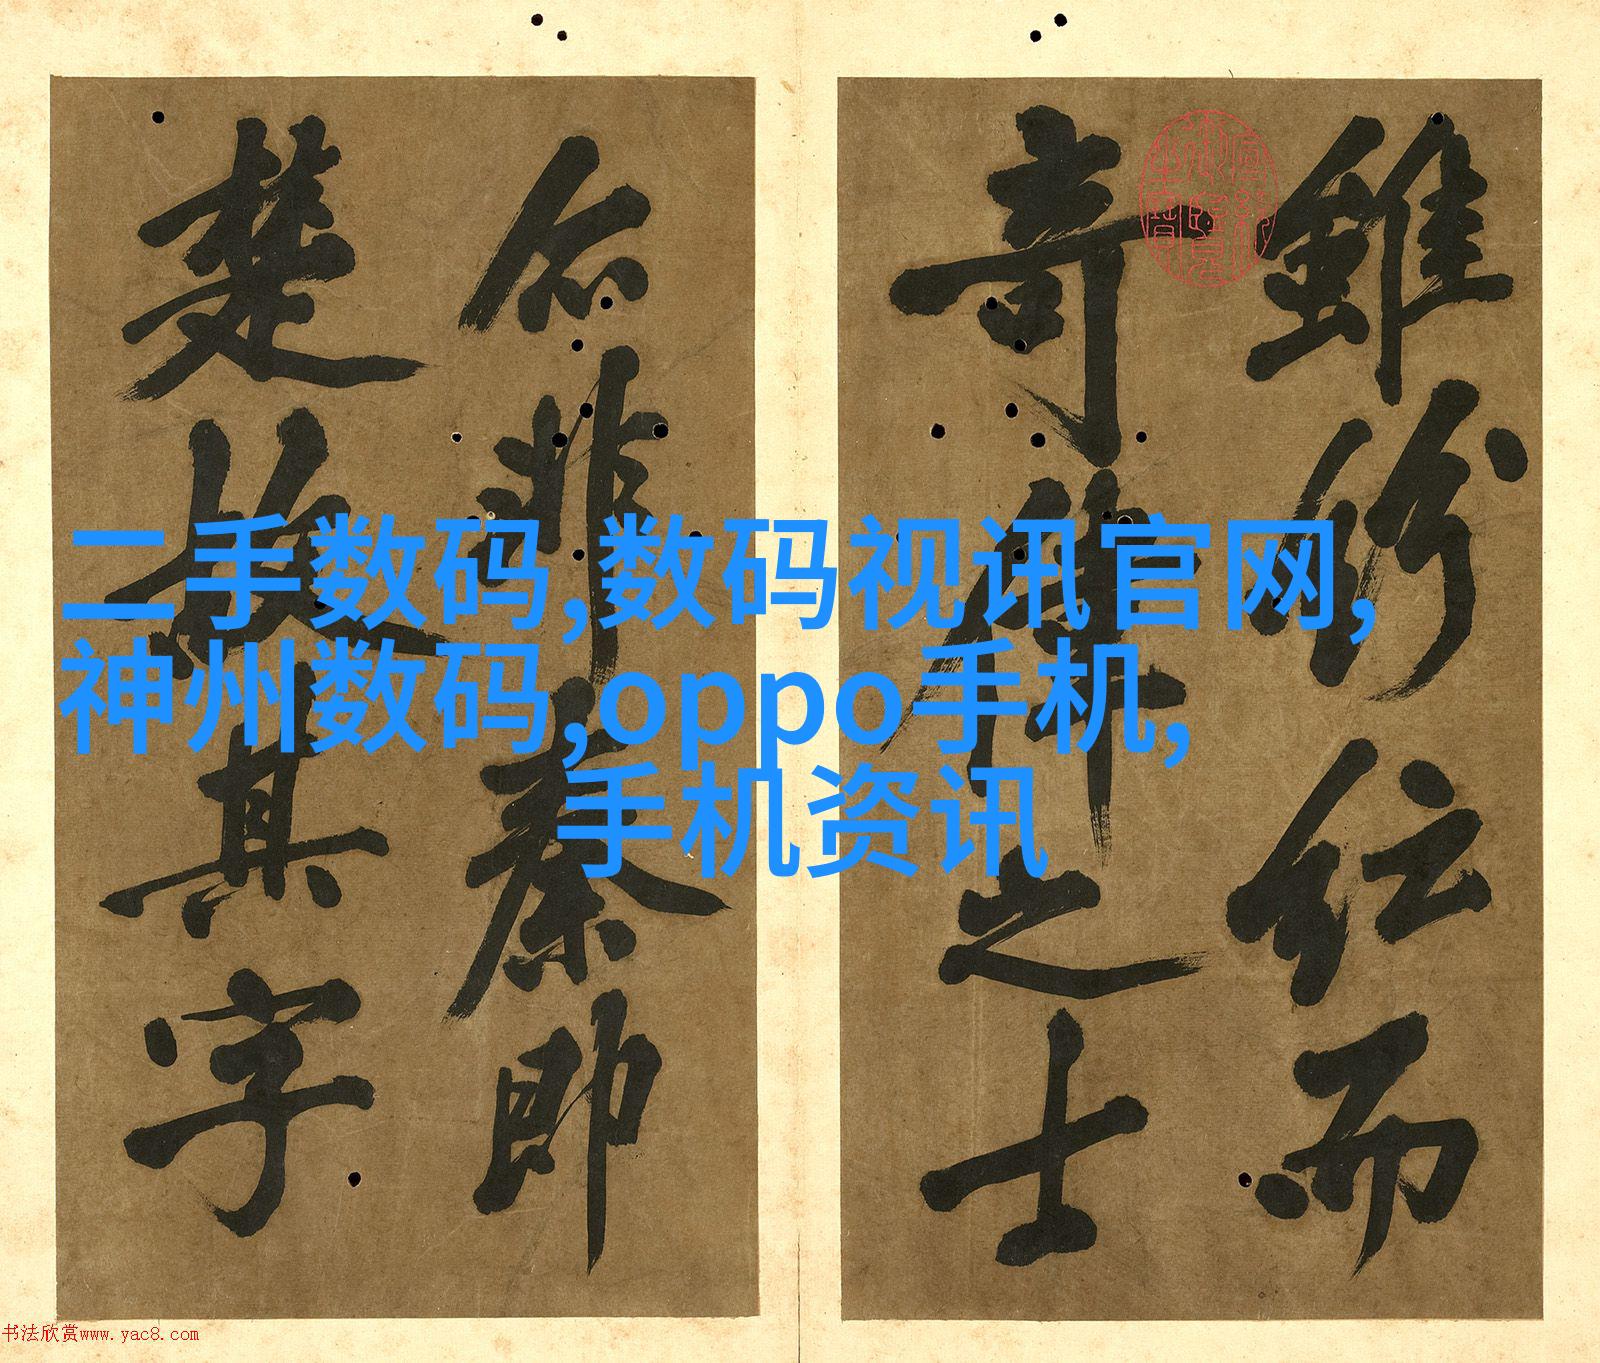 雖紛紜而
奇偉之士
非秦即
楚故其字
二手数码,数码视讯官网,
神州数码,oppo手机,
手机资讯
书法欣赏www.yac8.com